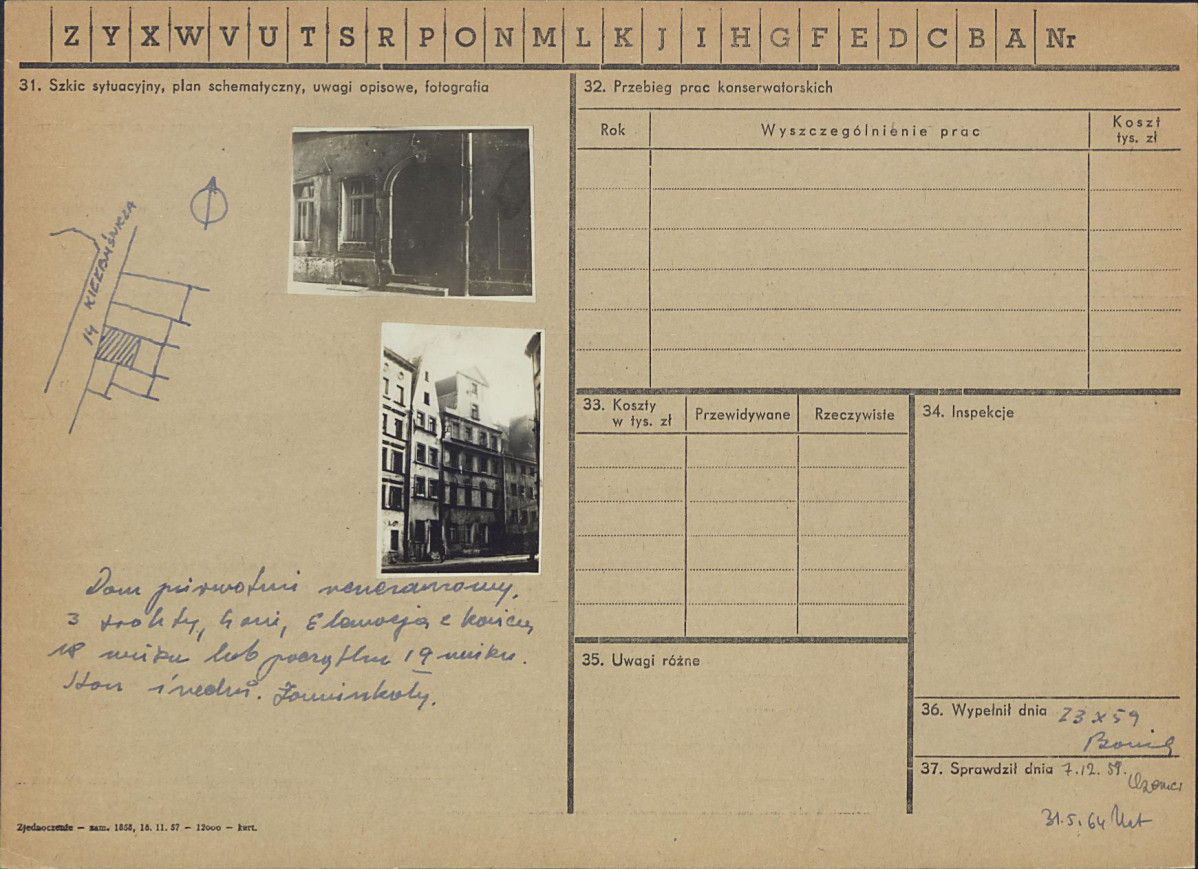 Z Y X W V U T S R P O N M L K J I H G F E D C B A Nr
31. Szkic sytuacyjny, plan schematyczny, uwagi opisowe, fotografia
14 KIEŁBAŚNICZA
Dom pierwotnie renesansowy,
3 trakty, Elewacja z końca
18 wieku lub początku 19 wieku.
Stan średni. Zamieszkały.
32. Przebieg prac konserwatorskich
Rok
Wyszczególnienie prac
Koszt
tys. zł
33. Koszty
w tys. zł
Przewidywane
Rzeczywiste
34. Inspekcje
35. Uwagi różne
36. Wypełnił dnia 23 X 59
37. Sprawdził dnia 7.12.59.
31.5.64
Zjednoczenie — zam. 1858, 16. 11. 57 — 12000 — kart.